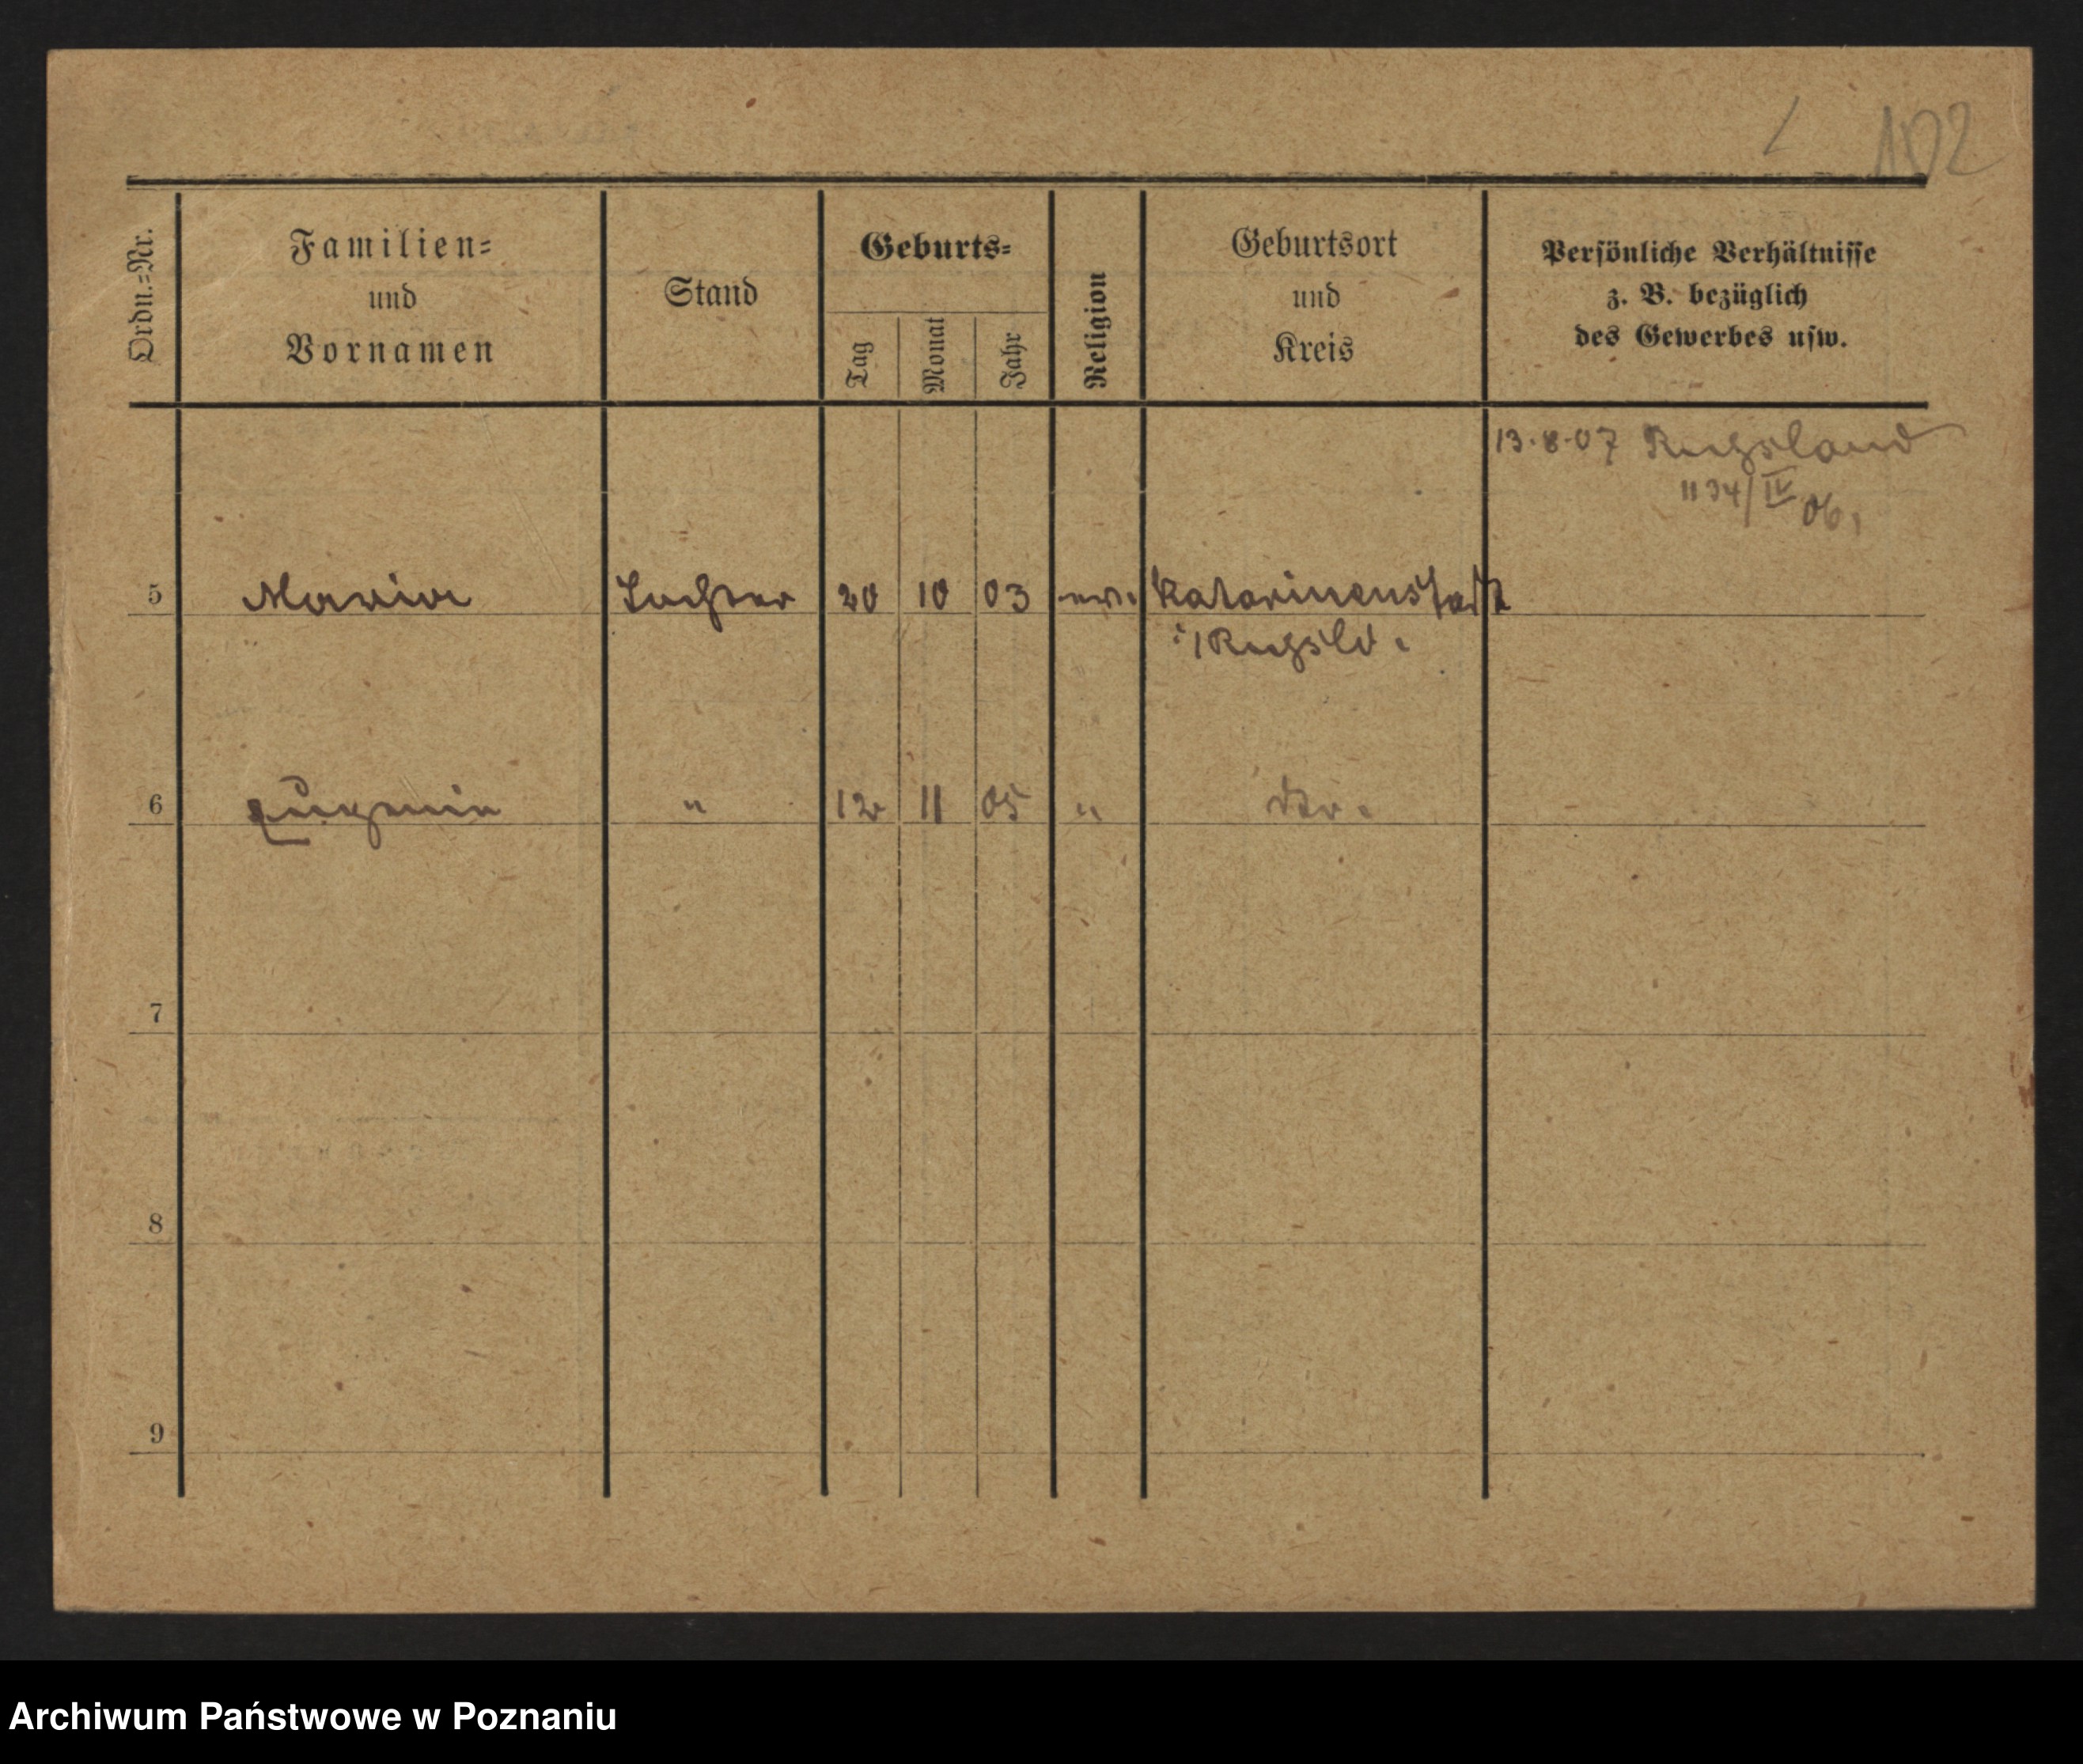 102
Ordn.=Nr.
Familien=
und
Vornamen
Stand
Geburts=
Tag
Monat
Jahr
Religion
Geburtsort
und
Kreis
Persönliche Verhältnisse
z. B. bezüglich
des Gewerbes usw.
13.8.07 Russland
1134/IV 06.
5 Maria Tochter 20 10 03 ev. Katarinenstadt
i/Russld.
6 Eugenie " 12 11 05 " dto.
7
8
9
Archiwum Państwowe w Poznaniu